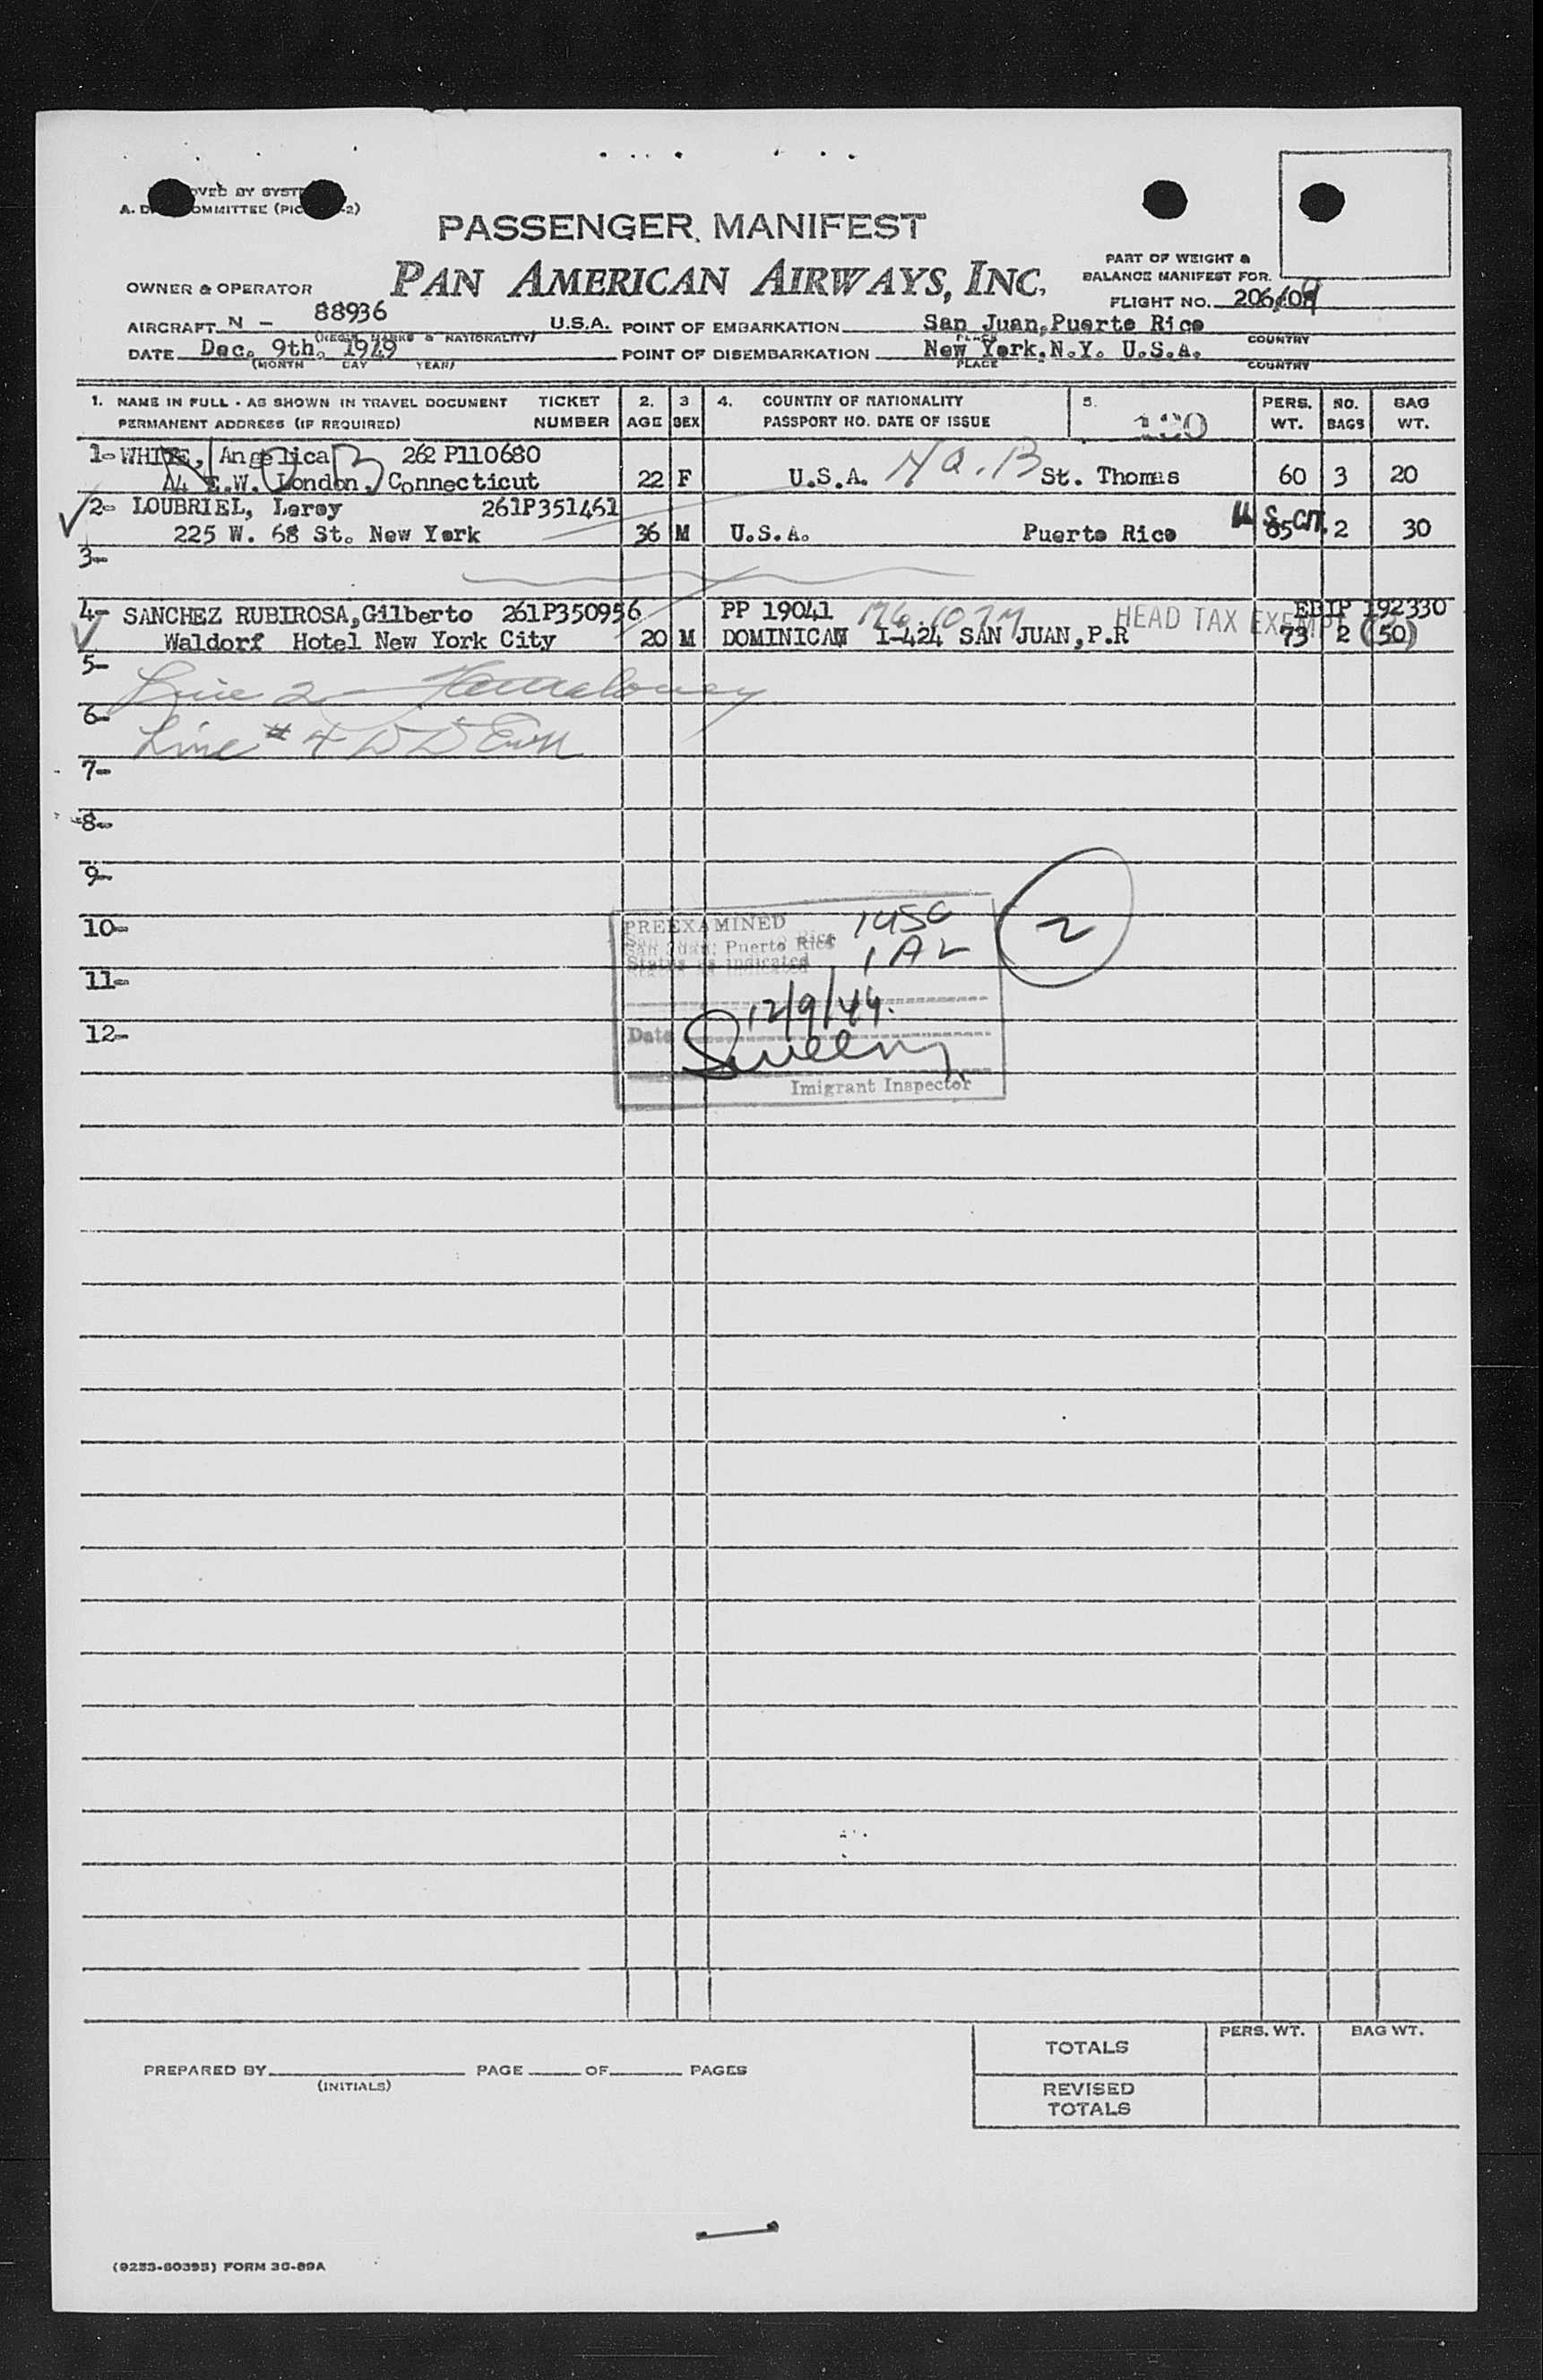 PASSENGER MANIFEST
PAN AMERICAN AIRWAYS, INC.
PART OF WEIGHT &
BALANCE MANIFEST FOR
OWNER & OPERATOR
FLIGHT NO. 206/
AIRCRAFT N - 88936 U.S.A. POINT OF EMBARKATION San Juan, Puerto Rico
PLACE COUNTRY
DATE Dec. 9th. 1949 POINT OF DISEMBARKATION New York, N.Y. U.S.A.
(MONTH DAY YEAR) PLACE COUNTRY
1. NAME IN FULL - AS SHOWN IN TRAVEL DOCUMENT TICKET 2. 3 4. COUNTRY OF NATIONALITY 5. PERS. NO. BAG
PERMANENT ADDRESS (IF REQUIRED) NUMBER AGE SEX PASSPORT NO. DATE OF ISSUE 120 WT. BAGS WT.
1- WHITE, Angelica 262 P110680
London, Connecticut 22 F U.S.A. St. Thomas 60 3 20
2- LOUBRIEL, Leroy 261P351461 U S CIT.
225 W. 68 St. New York 36 M U.S.A. Puerto Rico 85 2 30
3-
4- SANCHEZ RUBIROSA, Gilberto 261P350956 PP 19041 HEAD TAX EXEMPT 192330
Waldorf Hotel New York City 20 M DOMINICAN I-424 SAN JUAN, P.R 73 2 (50)
5-
Line 2
6-
Line # 4
7-
8-
9-
10-
PREEXAMINED
San Juan, Puerto Rico
Status as indicated
2
11-
12/9/49.
12-
Date
Imigrant Inspector
TOTALS PERS. WT. BAG WT.
PREPARED BY (INITIALS) PAGE OF PAGES
REVISED
TOTALS
(9253-60395) FORM 36-89A